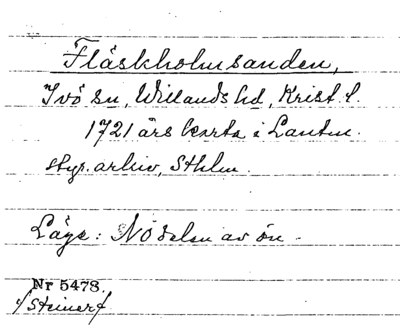 Fläskholmsanden,
Ivö sn, Willands hd, Krist. l.
1721 års karta i Lantm.
styr. arkiv, Sthlm.
Läge: NÖ delen av ön.
Nr 5478.